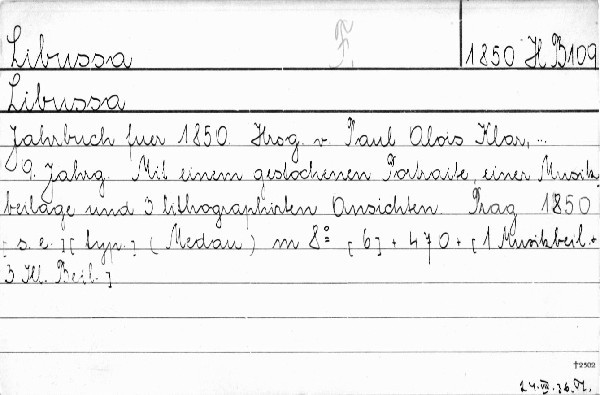 Libussa F. 1850 H B109
Libussa
Jahrbuch fuer 1850. Hrsg. v. Paul Alois Klar, ...
9. Jahrg. Mit einem gestochenen Portraite, einer Musik
beilage und 3 lithographirten Ansichten. Prag 1850
[s. e.] [typ.] (Medau) m 8° [6] + 470 + [1 Musikbeil. +
3 Ill. Beil.]
†2502
24.VII.36.